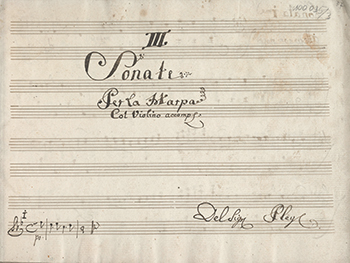 III.
Sonate
Per La Harpa
Col Violino accomp:
Del Sigr Pleyel